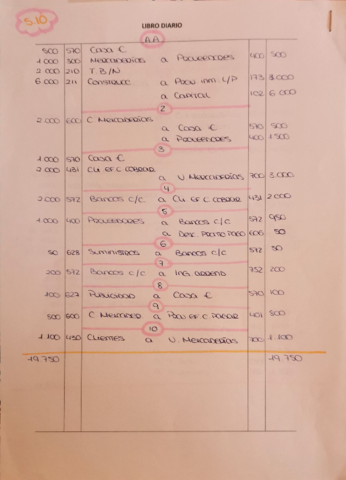 5.10
LIBRO DIARIO
AA
500 570 Caja €
1.000 300 Mercaderías a Proveedores 400 500
2.000 210 T.B/N a Prov inm L/P 173 3.000
6.000 211 Construcc
a Capital 102 6.000
2
2.000 600 C Mercaderías
a Caja € 570 500
a Proveedores 400 1.500
3
1.000 570 Caja €
2.000 431 Cli ef C cobrar
a V Mercaderías 700 3.000
4
2.000 572 Bancos c/c a Cli ef C cobrar 431 2.000
5
1.000 400 Proveedores a Bancos c/c 572 950
a Desc. Pronto Pago 606 50
6
50 628 Suministros a Bancos c/c 572 50
7
200 572 Bancos c/c a Ing. arrend 752 200
8
100 627 Publicidad a Caja € 570 100
9
800 600 C Mercader a Prov ef C pagar 401 800
10
1.100 430 Clientes a V. Mercaderías 700 1.100
19.750 19.750